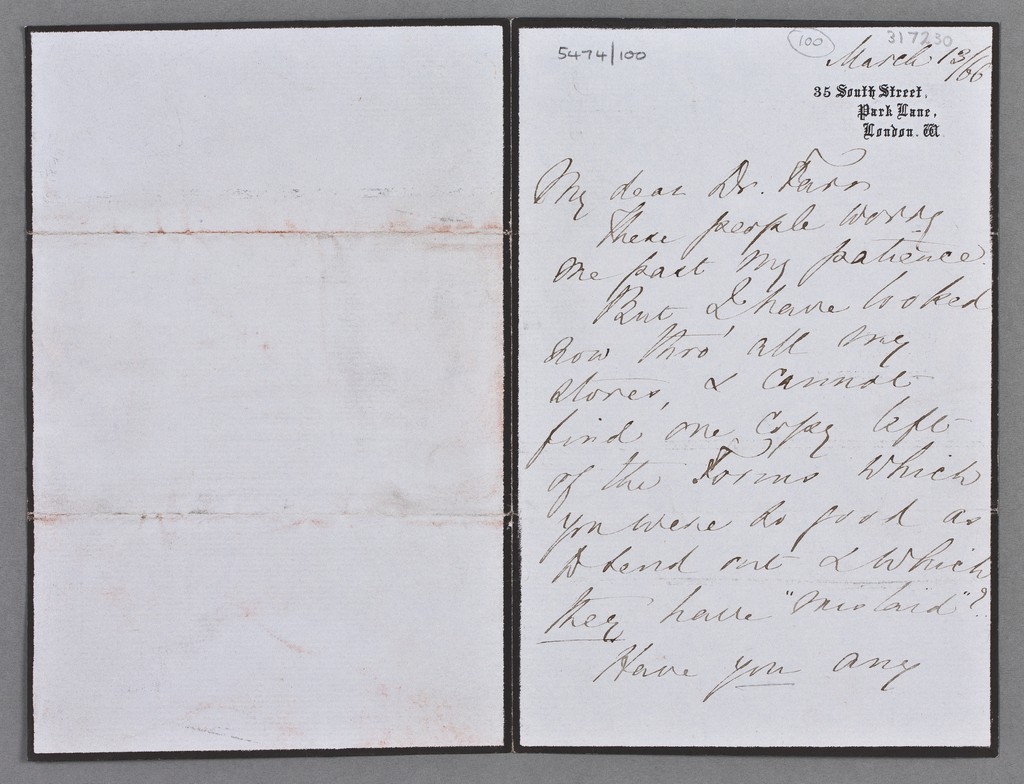 5474/100
100
317230
March 13/66
35 South Street,
Park Lane,
London. W.
My dear Dr. Farr
These people worry
me past my patience.
But I have looked
now thro' all my
stores, & cannot
find one copy left
of the Forms which
you were so good as
to send out & which
they have "mislaid"?
Have you any